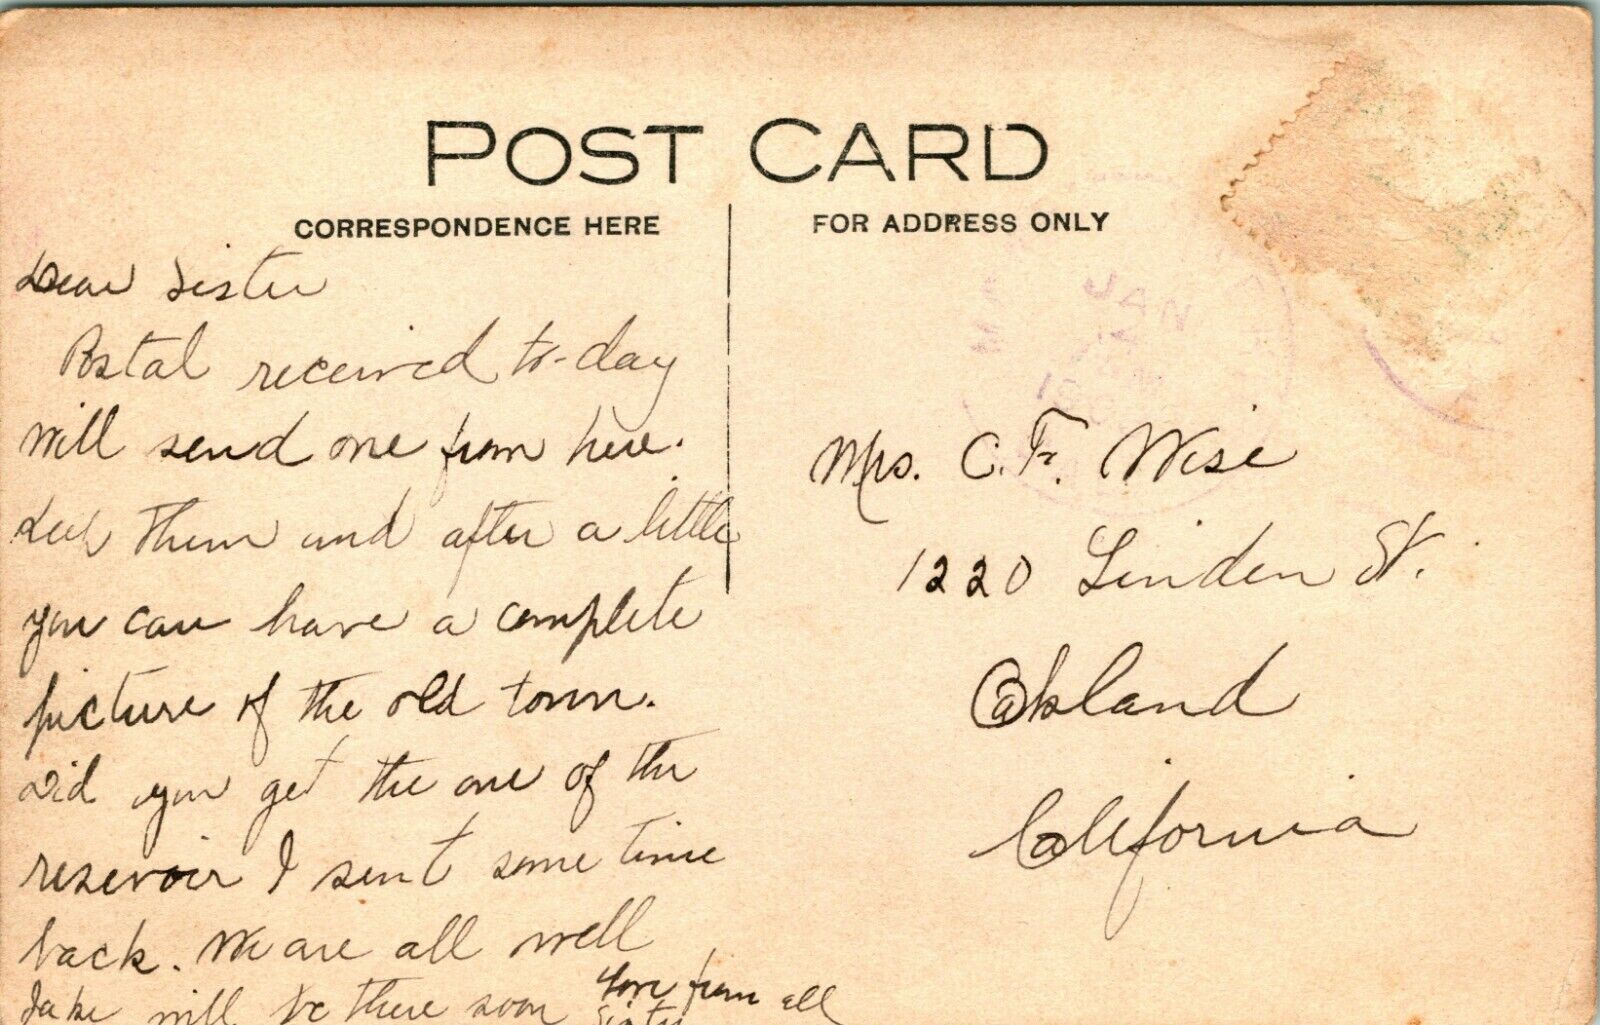 POST CARD
CORRESPONDENCE HERE
FOR ADDRESS ONLY
Dear Sister
Postal received to-day
will send one from here.
them and after a little
you can have a complete
picture of the old town.
Did you get the one of the
reservoir I sent some time
back. We are all well
Jake will be there soon Love from all
Sister
JAN
Mrs. C. F. Wise
1220 Linden St.
Oakland
California